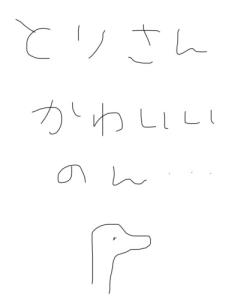 とりさん
かわいい
のん...